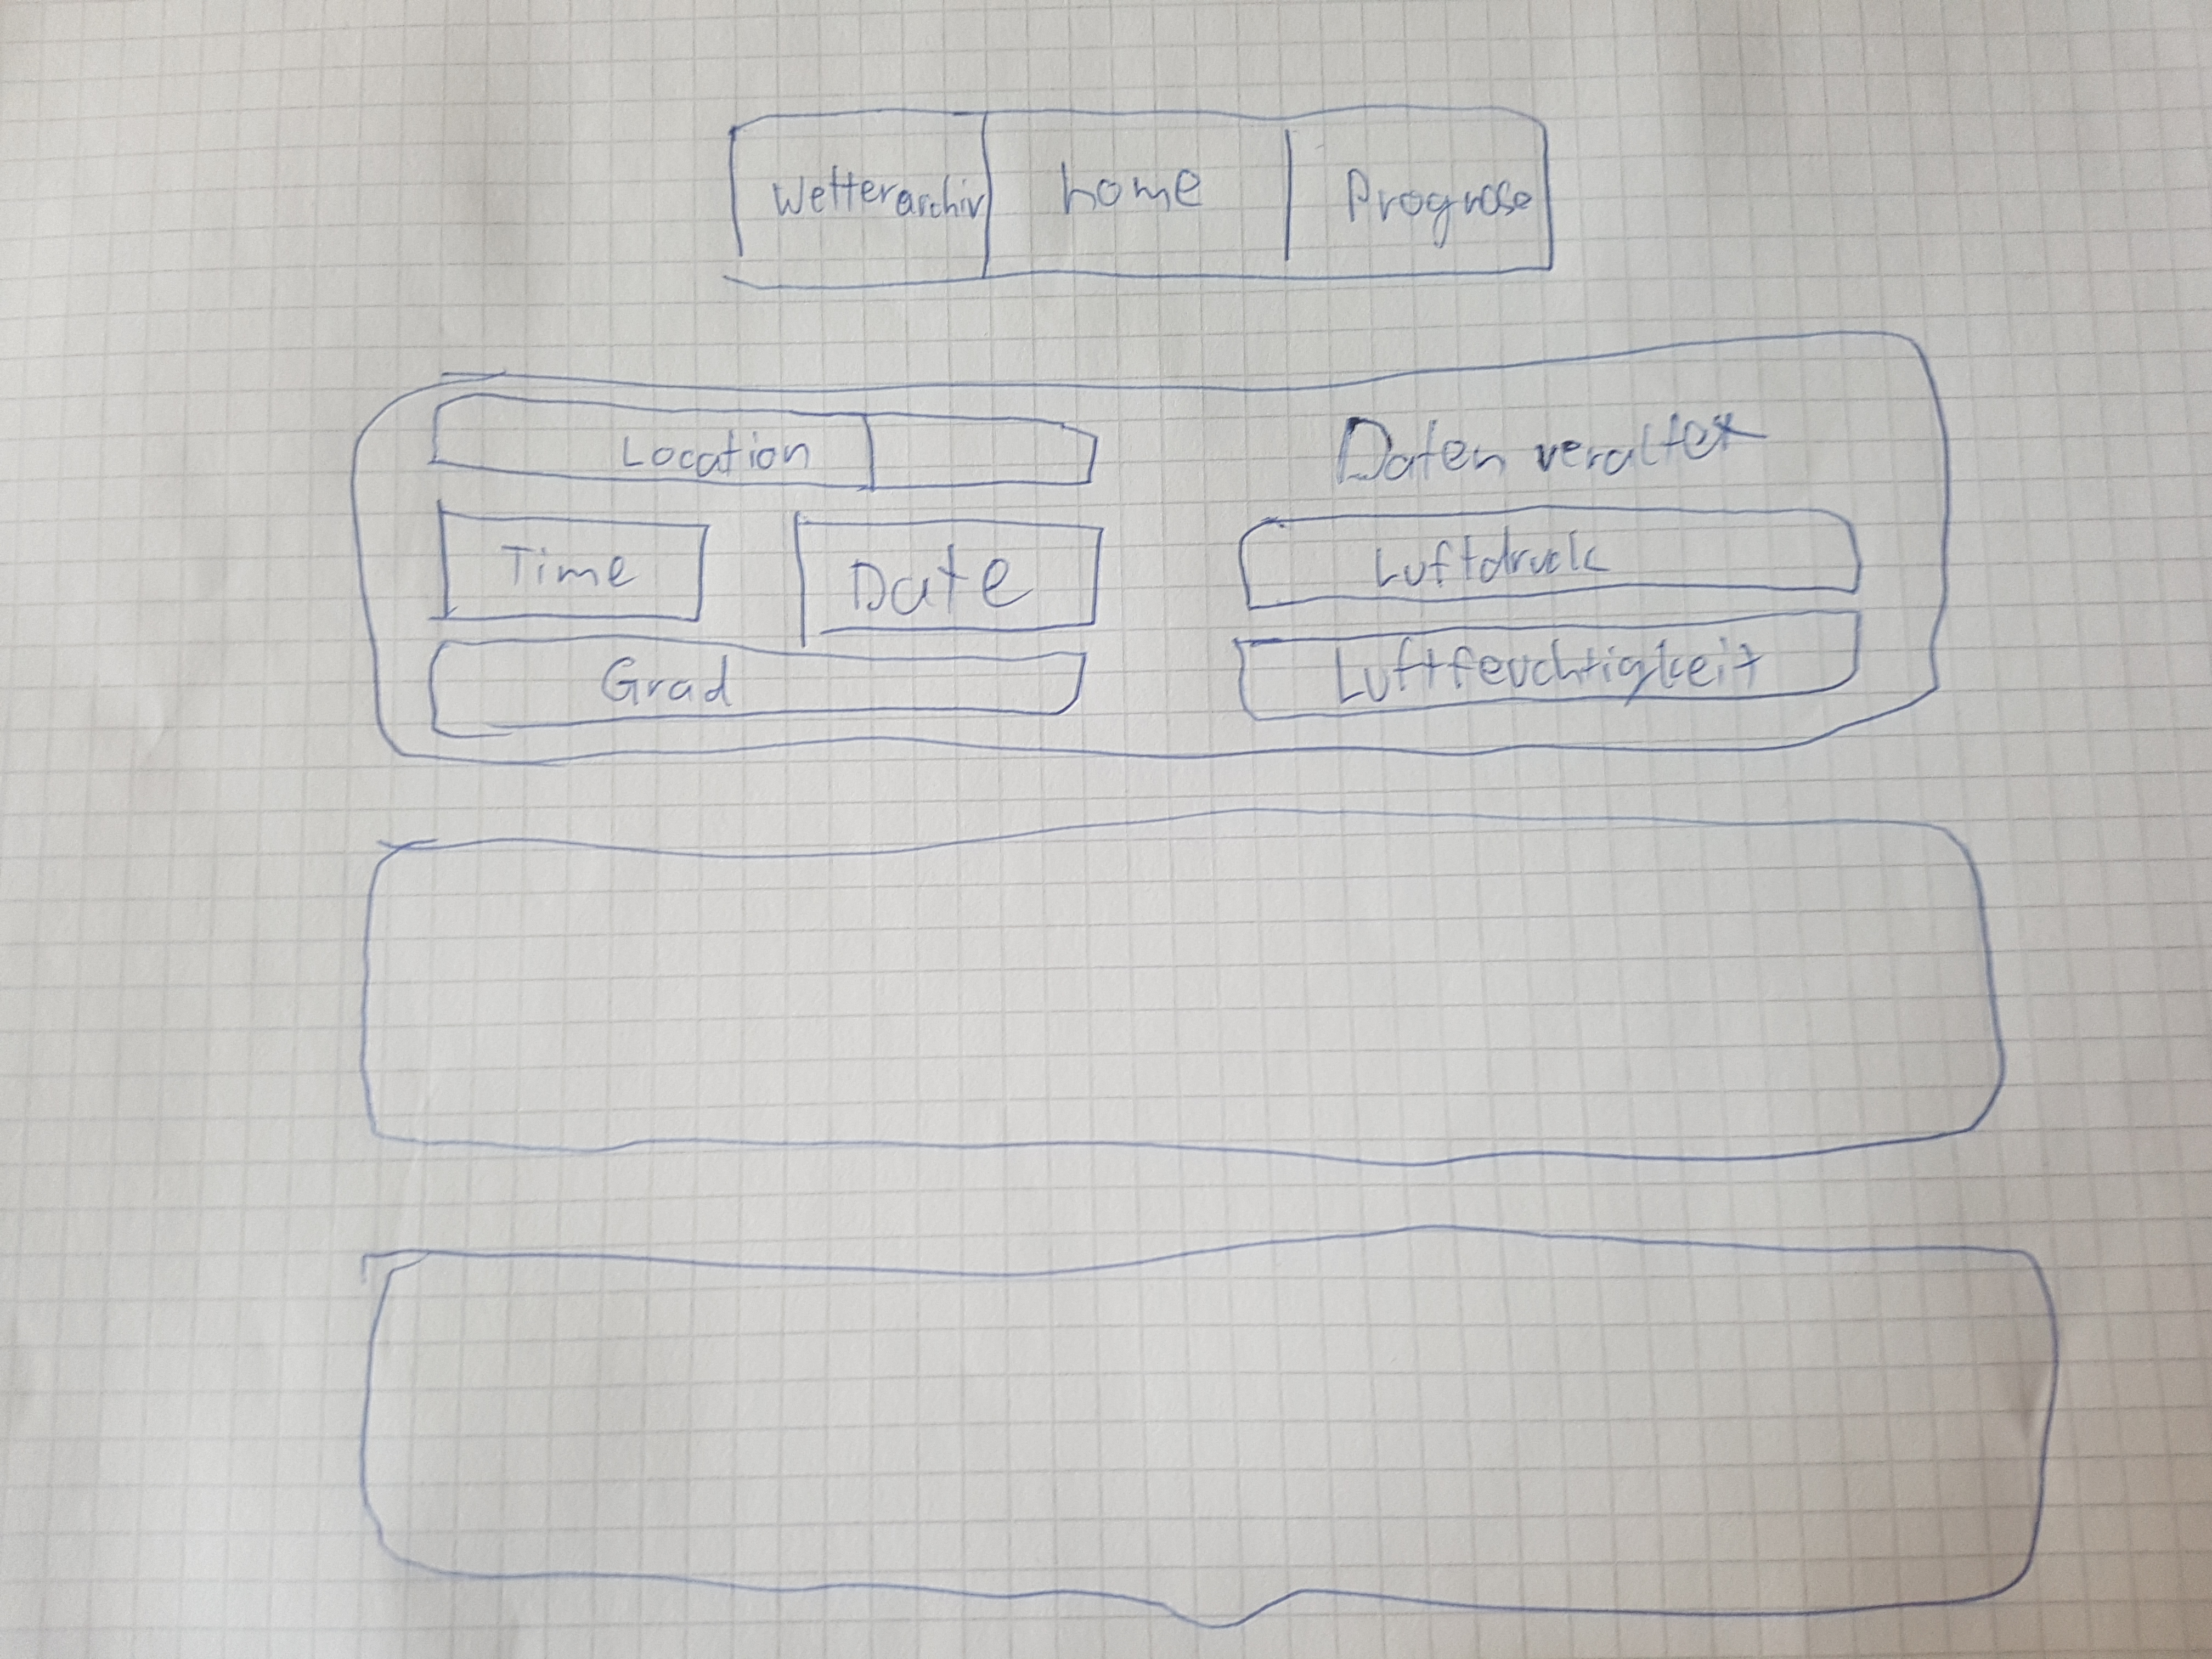 Wetterarchiv home Prognose
Location Daten veraltet
Time Date Luftdruck
Grad Luftfeuchtigkeit